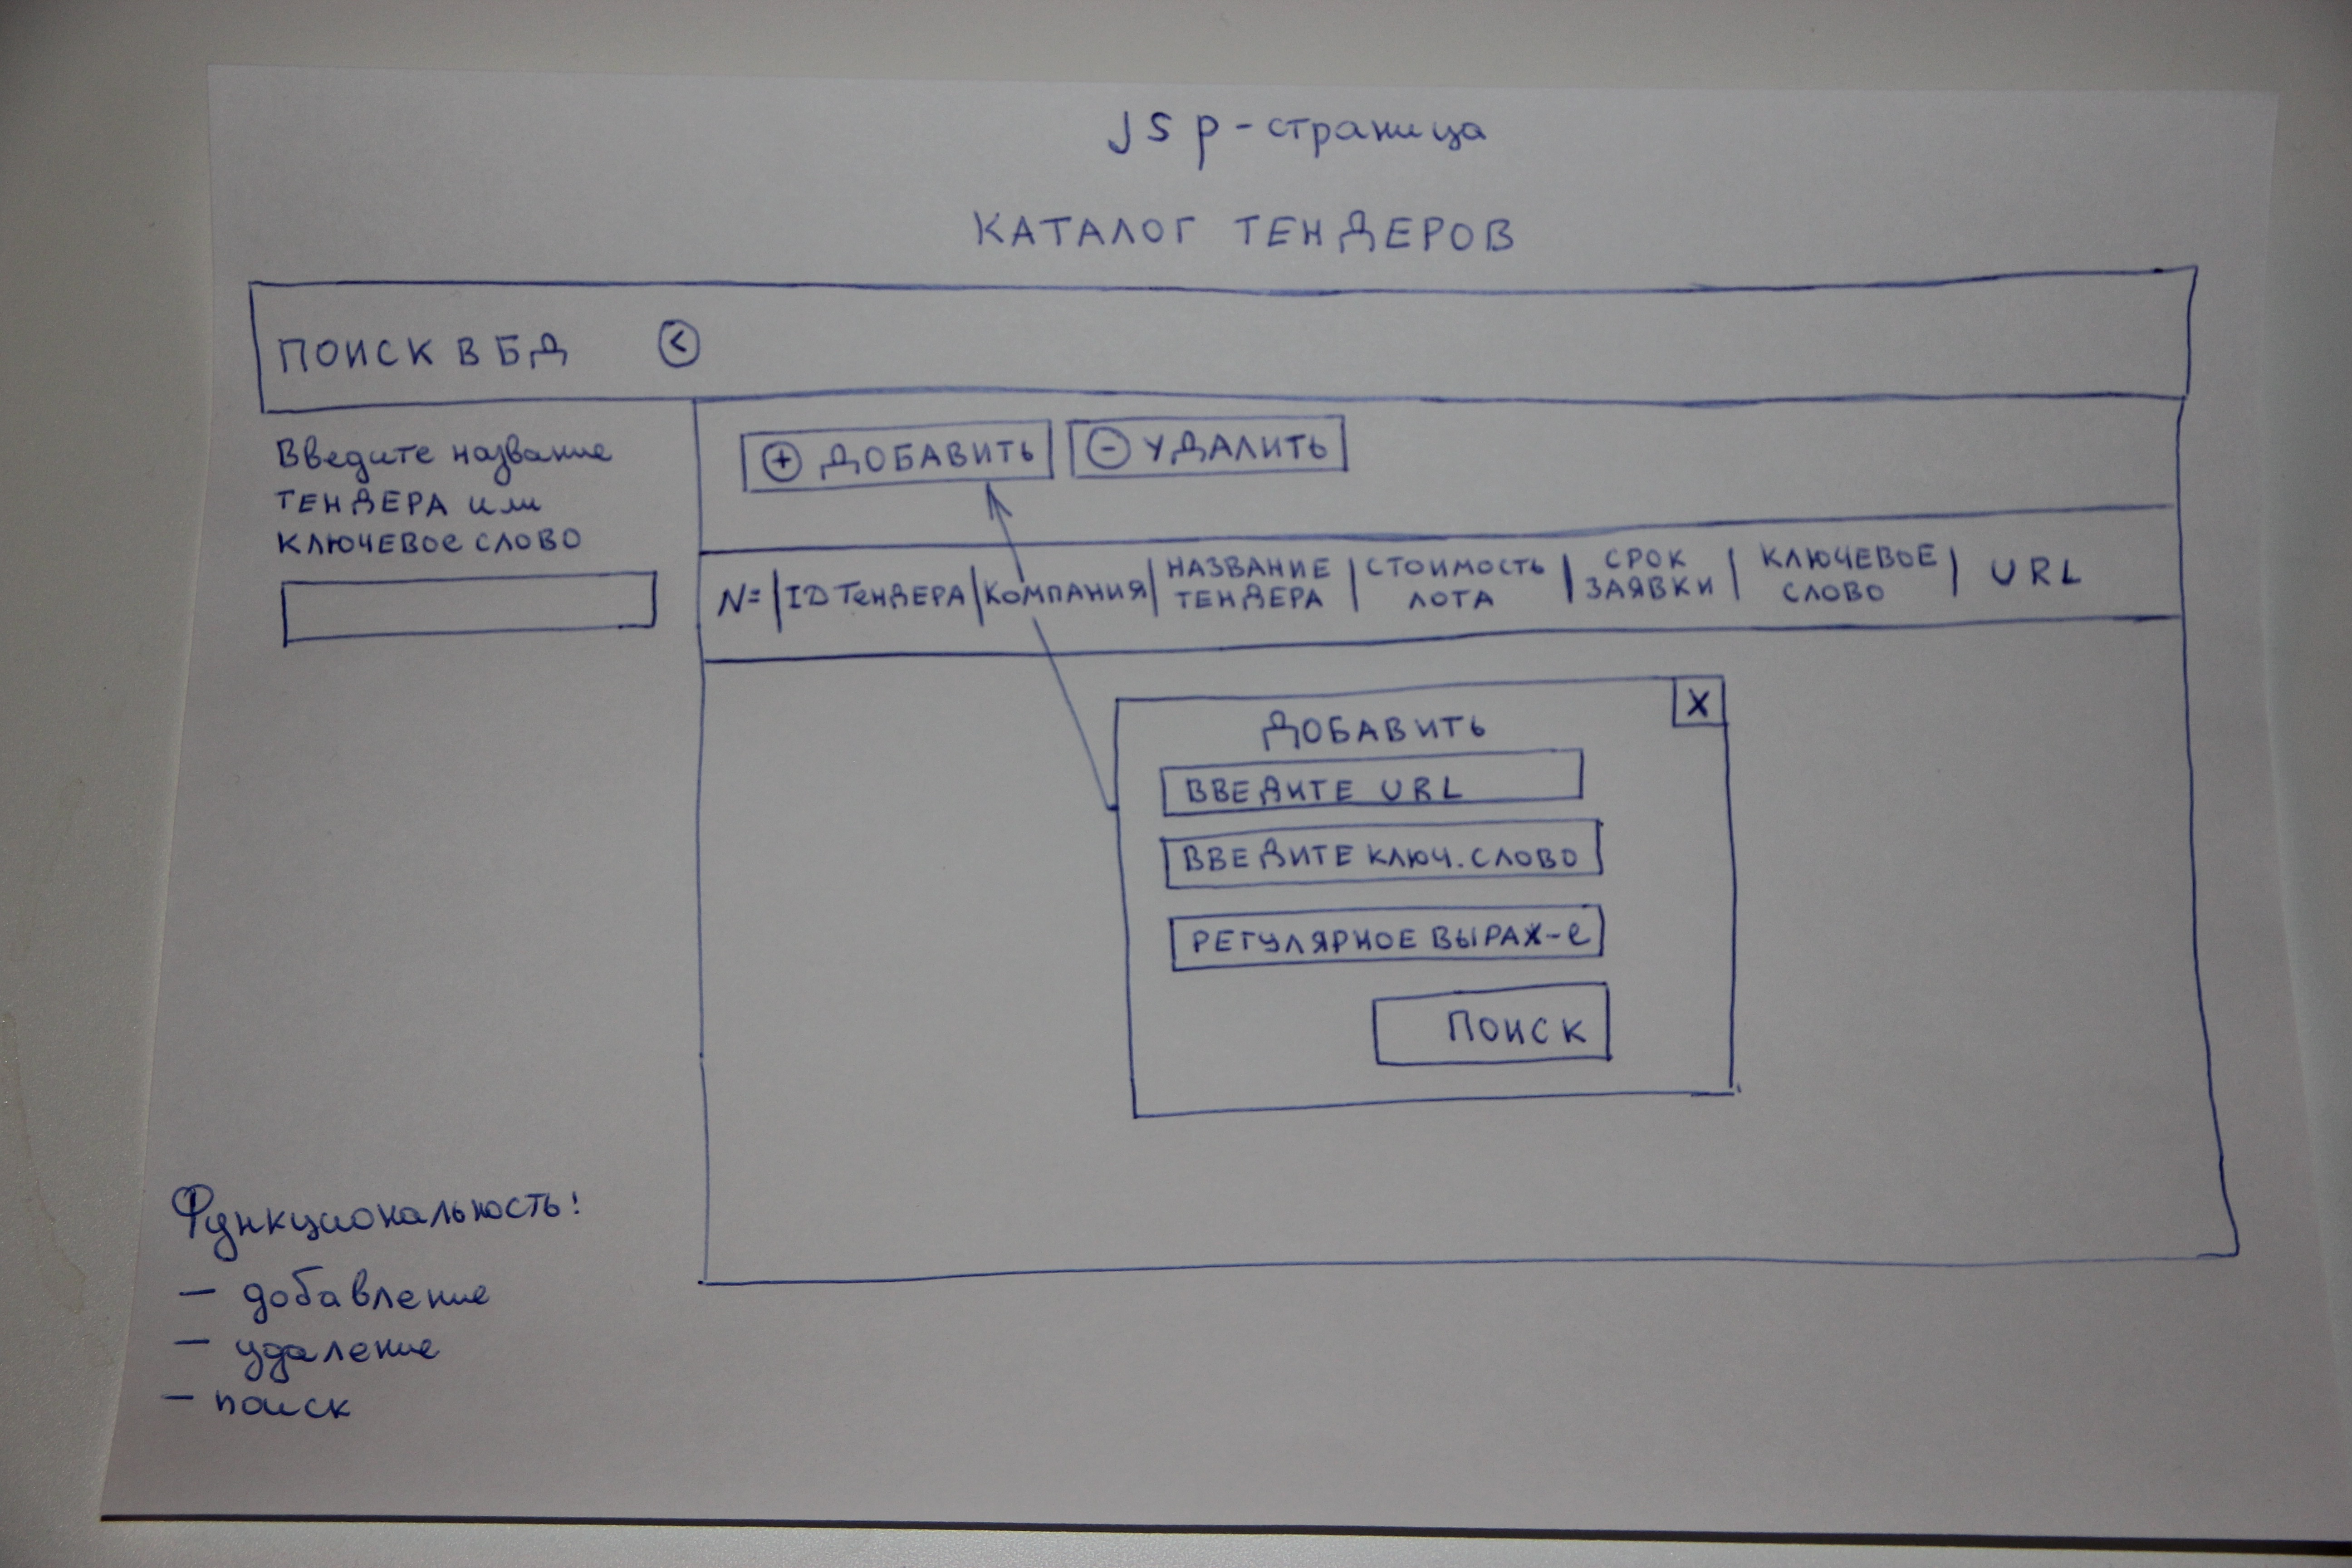 jsp-страница
КАТАЛОГ ТЕНДЕРОВ
ПОИСК В БД <
Введите название
ТЕНДЕРА или
КЛЮЧЕВОЕ СЛОВО
+ ДОБАВИТЬ
- УДАЛИТЬ
N= | ID ТЕНДЕРА | КОМПАНИЯ | НАЗВАНИЕ ТЕНДЕРА | СТОИМОСТЬ ЛОТА | СРОК ЗАЯВКИ | КЛЮЧЕВОЕ СЛОВО | URL
X
ДОБАВИТЬ
ВВЕДИТЕ URL
ВВЕДИТЕ КЛЮЧ. СЛОВО
РЕГУЛЯРНОЕ ВЫРАЖ-Е
ПОИСК
Функциональность:
— добавление
— удаление
— поиск